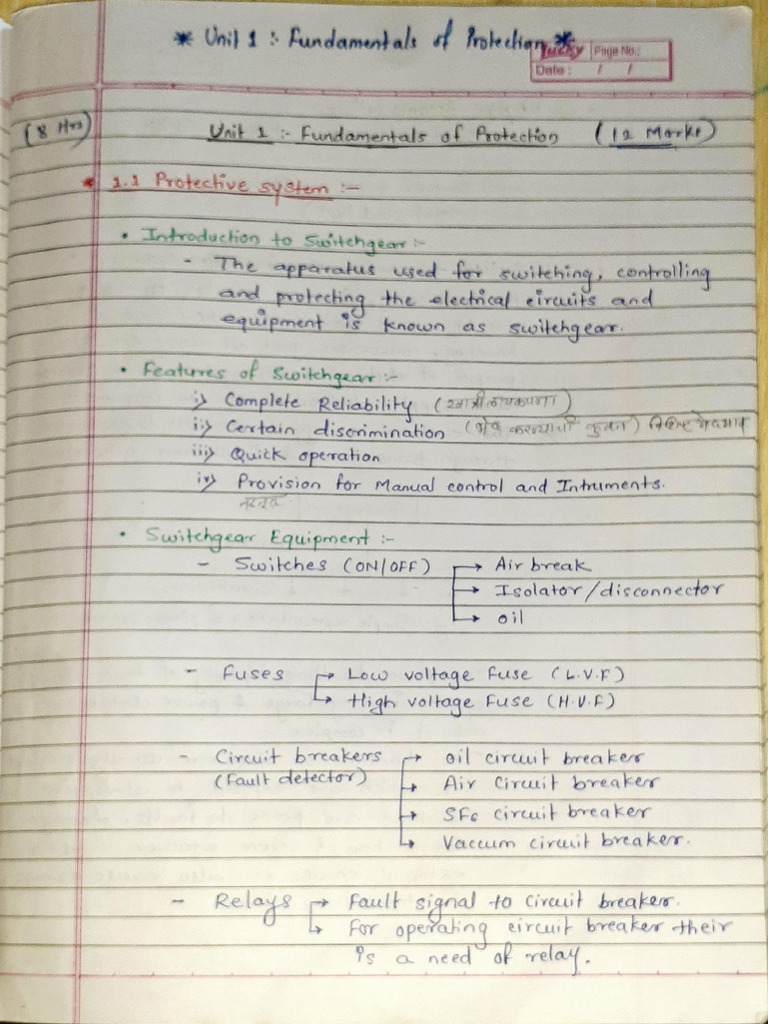 * Unit 1 : Fundamentals of Protection *
Lucky Page No.:
Date : / /
(8 Hrs) Unit 1 :- Fundamentals of Protection (12 Marks)
* 1.1 Protective system :-
• Introduction to Switchgear :-
- The apparatus used for switching, controlling
and protecting the electrical circuits and
equipment is known as switchgear.
• Features of Switchgear :-
i) Complete Reliability (खात्रीलायकपणा)
ii) Certain discrimination
iii) Quick operation
iv) Provision for Manual control and Intruments.
• Switchgear Equipment :-
- Switches (ON/OFF) → Air break
→ Isolator/disconnector
→ oil
- Fuses → Low voltage Fuse (L.V.F)
→ High voltage Fuse (H.V.F)
- Circuit breakers → oil circuit breaker
(Fault detector) → Air circuit breaker
→ SF6 circuit breaker
→ Vaccum circuit breaker.
- Relays → Fault signal to circuit breaker.
→ For operating circuit breaker their
is a need of relay.